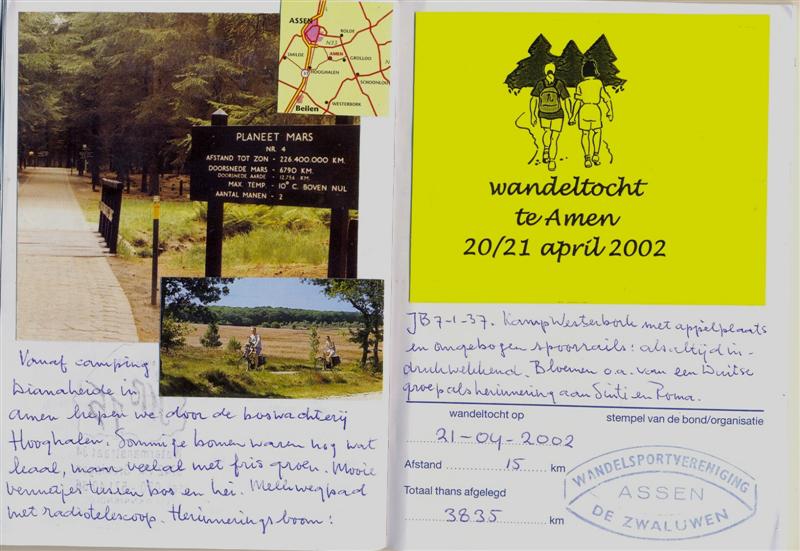 ASSEN
ROLDE
N33
SMILDE
AMEN
GROLLOO
HOOGHALEN
SCHOONLOO
WESTERBORK
Beilen
PLANEET MARS
NR. 4
AFSTAND TOT ZON - 226.400.000 KM.
DOORSNEDE MARS - 6790 KM.
DOORSNEDE AARDE - 12.756 KM.
MAX. TEMP. - 10° C. BOVEN NUL
AANTAL MANEN - 2
Vanaf camping
Dianaheide in
Amen liepen we door de boswachterij
Hooghalen. Sommige bomen waren nog wat
kaal, maar veel al met fris groen. Mooie
vennetjes tussen bos en hei. Melkwegpad
met radiotelescoop. Herinneringsboom:
wandeltocht
te Amen
20/21 april 2002
JB7-1-37. Kamp Westerbork met appèlplaats
en omgebogen spoorrails: als altijd in-
drukwekkend. Bloemen o.a. van een Duitse
groep als herinnering aan Sinti en Roma.
wandeltocht op
stempel van de bond/organisatie
21-04-2002
Afstand 15 km
Totaal thans afgelegd
3835 km
WANDELSPORTVERENIGING
ASSEN
DE ZWALUWEN